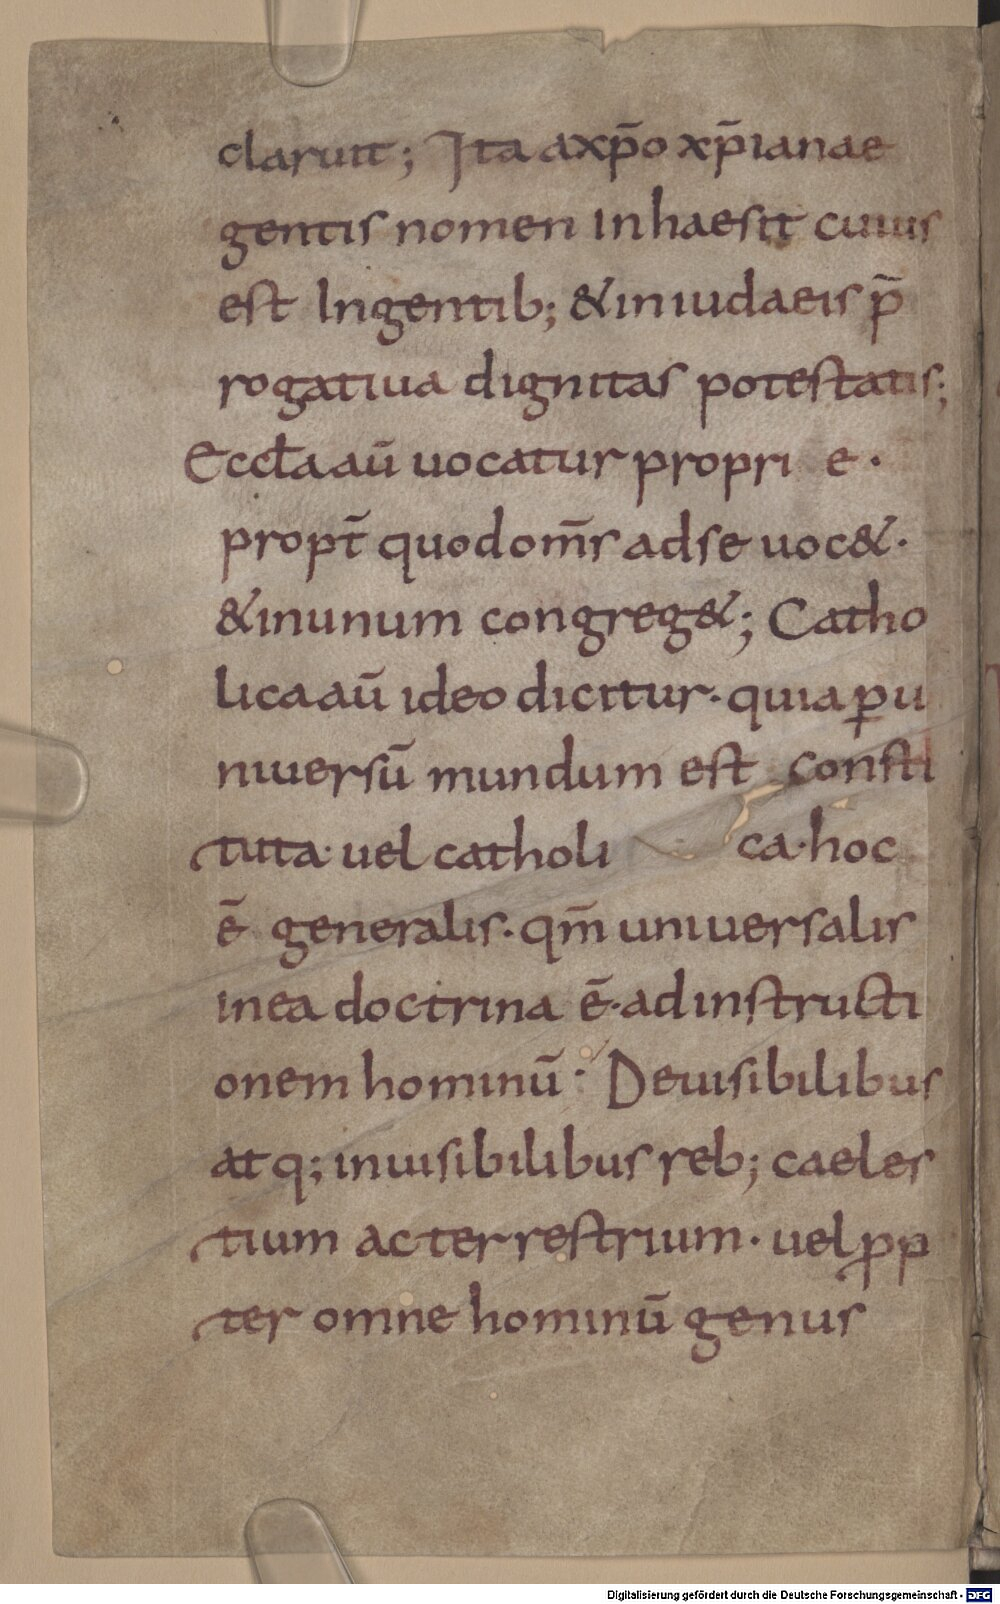 claruit; Ita axp̄o xp̄ianae
gentis nomen inhaesit cuius
est Ingentib; & iniudaeis p̄
rogatiua dignitas potestatis;
Eccƚa aū uocatur propri e·
propt̄ quodom̄s adse uoc&·
&inunum congreg&; Catho
lica aū ideo dicitur· quia ꝑu
niuersū mundum est consti
tuta· uel catholi ca· hoc
ē generalis· qm̄ uniuersalis
inea doctrina ē· ad instructi
onem hominū· Deuisibilibus
atq; inuisibilibus reb; caeles
tium ac terrestrium· uel ꝓp
ter omne hominū genus
Digitalisierung gefördert durch die Deutsche Forschungsgemeinschaft - DFG